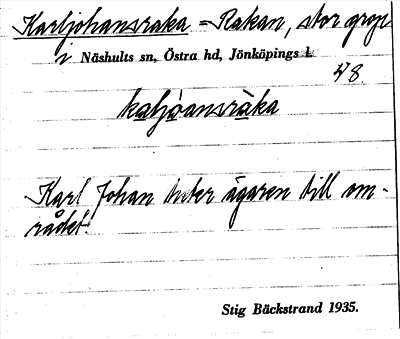 Karljohansraka = Rakan, stor grop
i Näshults sn, Östra hd, Jönköpings l.
48.
kaljòansràka
Karl Johan heter ägaren till om-
rådet.
Stig Bäckstrand 1935.